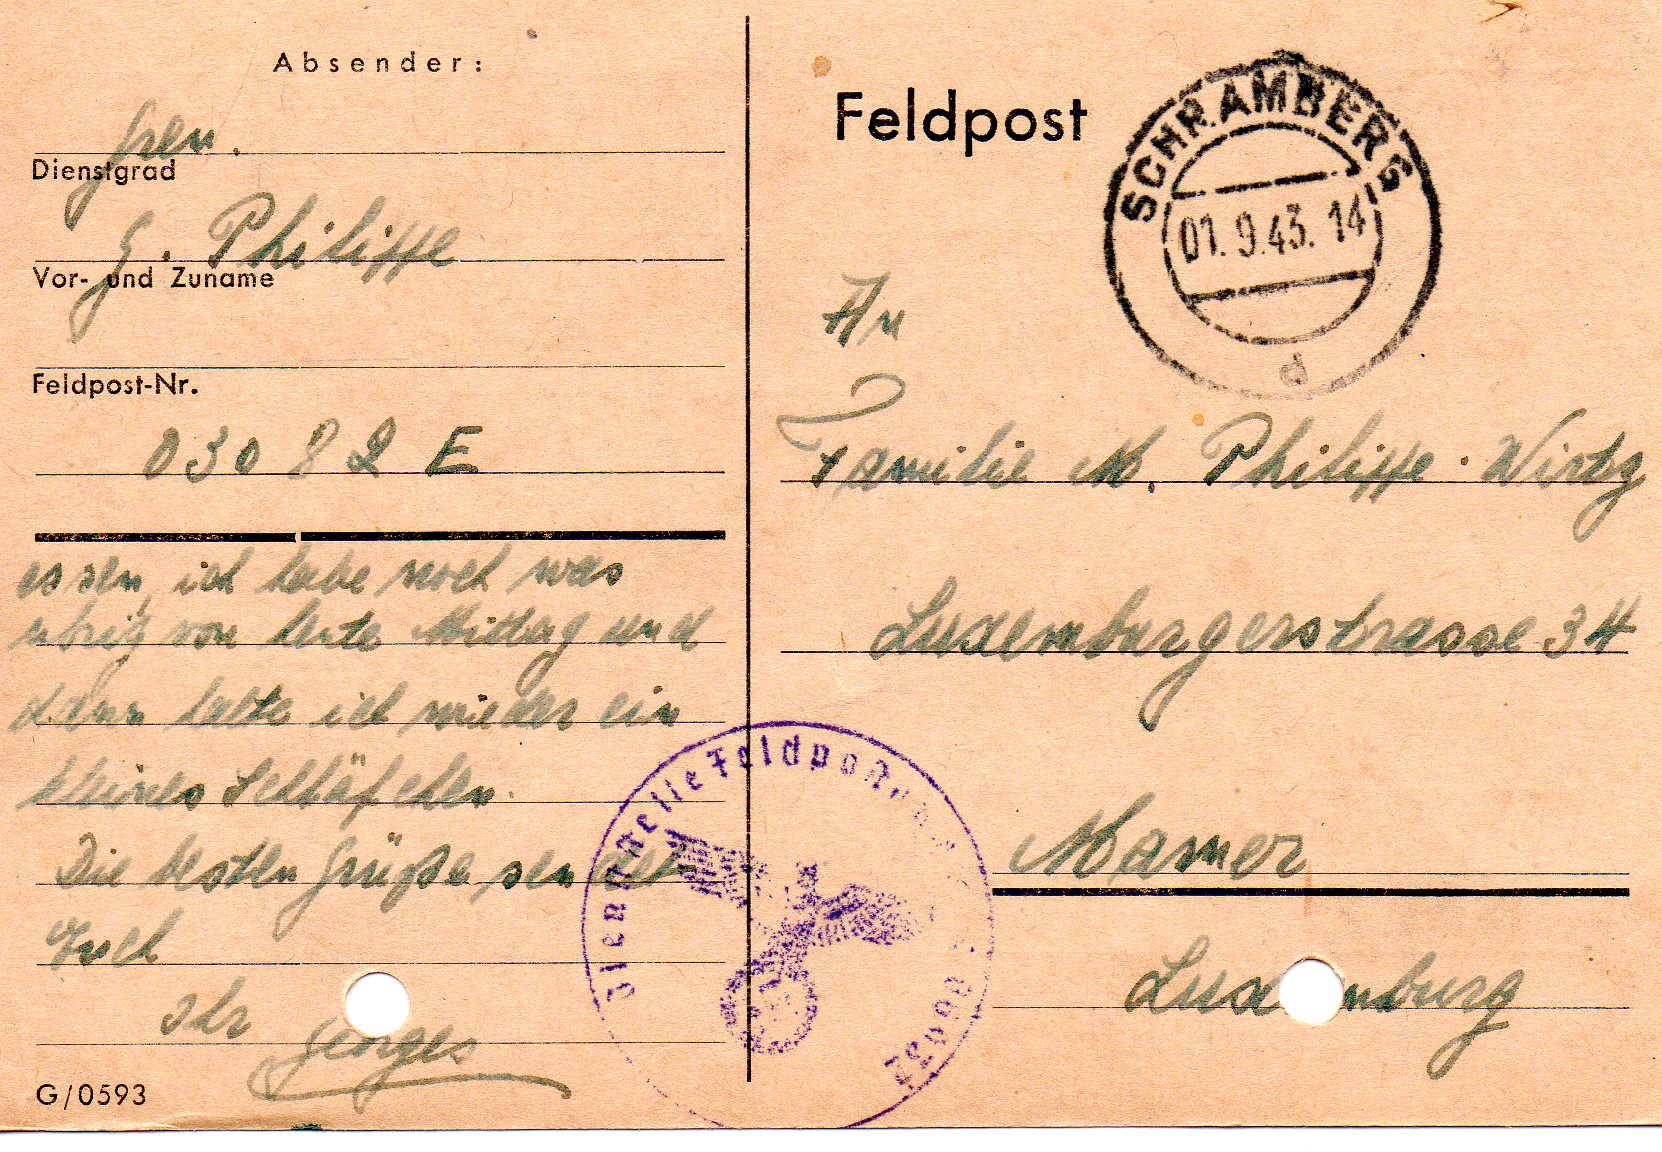 Absender:
Gren.
Dienstgrad
G. Philippe
Vor- und Zuname
Feldpost-Nr.
03082 E
essen, ich habe noch was
übrig von heute Mittag und
dann halte ich wieder ein
kleines Schläfchen.
Die besten Grüße sendet
Euch
Ihr Georges
G/0593
Feldpost
SCHRAMBERG
01.9.43.14
d
An
Familie M. Philippe-Wirtz
Luxemburgerstrasse 34
Mamer
Luxemburg
Dienststelle Feldpost